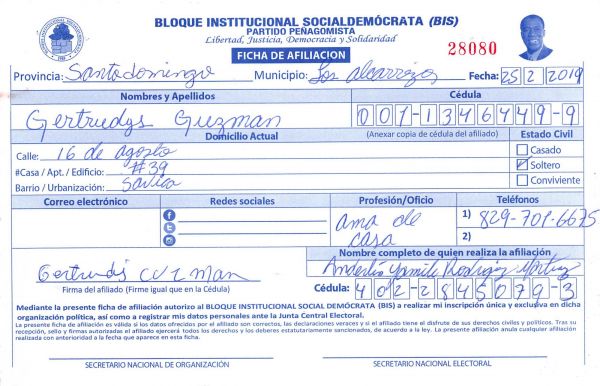 BLOQUE INSTITUCIONAL SOCIALDEMÓCRATA (BIS)
PARTIDO PEÑAGOMISTA
Libertad, Justicia, Democracia y Solidaridad
FICHA DE AFILIACION
28080
Provincia: Santo domingo Municipio: Los alcarrizos Fecha: 25/2/2019
Nombres y Apellidos Cédula
Gertrudys Guzman 001-1346449-9
Domicilio Actual (Anexar copia de cédula del afiliado) Estado Civil
Calle: 16 de agosto Casado
#Casa / Apt. / Edificio: #39 Soltero
Barrio / Urbanización: Savica Conviviente
Correo electrónico Redes sociales Profesión/Oficio Teléfonos
ama de casa 1) 829-701-6675
2)
Nombre completo de quien realiza la afiliación
Gertrudis Guzman Yamile Rodriguez
Firma del afiliado (Firme igual que en la Cédula) Cédula: 402-2845079-3
Mediante la presente ficha de afiliación autorizo al BLOQUE INSTITUCIONAL SOCIAL DEMÓCRATA (BIS) a realizar mi inscripción única y exclusiva en dicha
organización política, así como a registrar mis datos personales ante la Junta Central Electoral.
La presente ficha de afiliación es válida si los datos ofrecidos por el afiliado son correctos, las declaraciones veraces y si el afiliado tiene el disfrute de sus derechos civiles y políticos. Tras su
recepción, sello y firmas autorizadas el afiliado ejercerá todos los derechos y los deberes estatutariamente sancionados, de acuerdo a la ley. La presente afiliación anula cualquier afiliación
realizada con anterioridad a la fecha que aparece en esta ficha.
SECRETARIO NACIONAL DE ORGANIZACIÓN SECRETARIO NACIONAL ELECTORAL